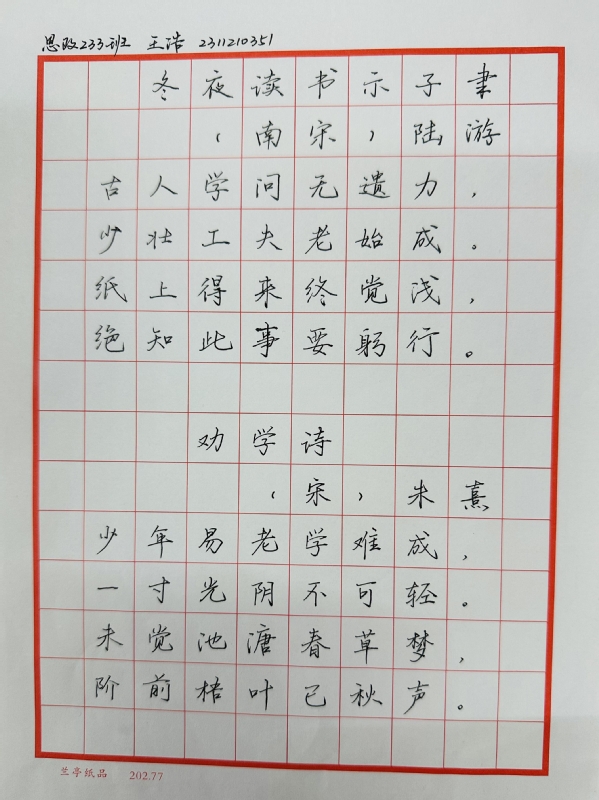 思政233班 王浩 2311210351
冬夜读书示子聿
（南宋）陆游
古人学问无遗力，
少壮工夫老始成。
纸上得来终觉浅，
绝知此事要躬行。
劝学诗
（宋）朱熹
少年易老学难成，
一寸光阴不可轻。
未觉池溏春草梦，
阶前梧叶已秋声。
兰亭纸品 202.77